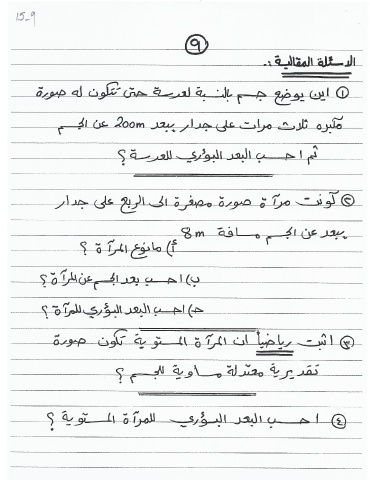 15-9
٩
الاسئلة المقالية :.
① اين يوضع جسم بالنسبة لعدسة حتى تتكون له صورة
مكبره ثلاث مرات على جدار يبعد 200m عن الجسم
ثم احسب البعد البؤري للعدسة ؟
② كونت مرآة صورة مصغرة الى الربع على جدار
يبعد عن الجسم مسافة 8m
أ) مانوع المرآة ؟
ب) احسب بعد الجسم عن المرآة ؟
حـ) احسب البعد البؤري للمرآة ؟
③ اثبت رياضياً ان المرآة المستوية تكون صورة
تقديرية معتدلة مساوية للجسم ؟
④ احسب البعد البؤري للمرآة المستوية ؟